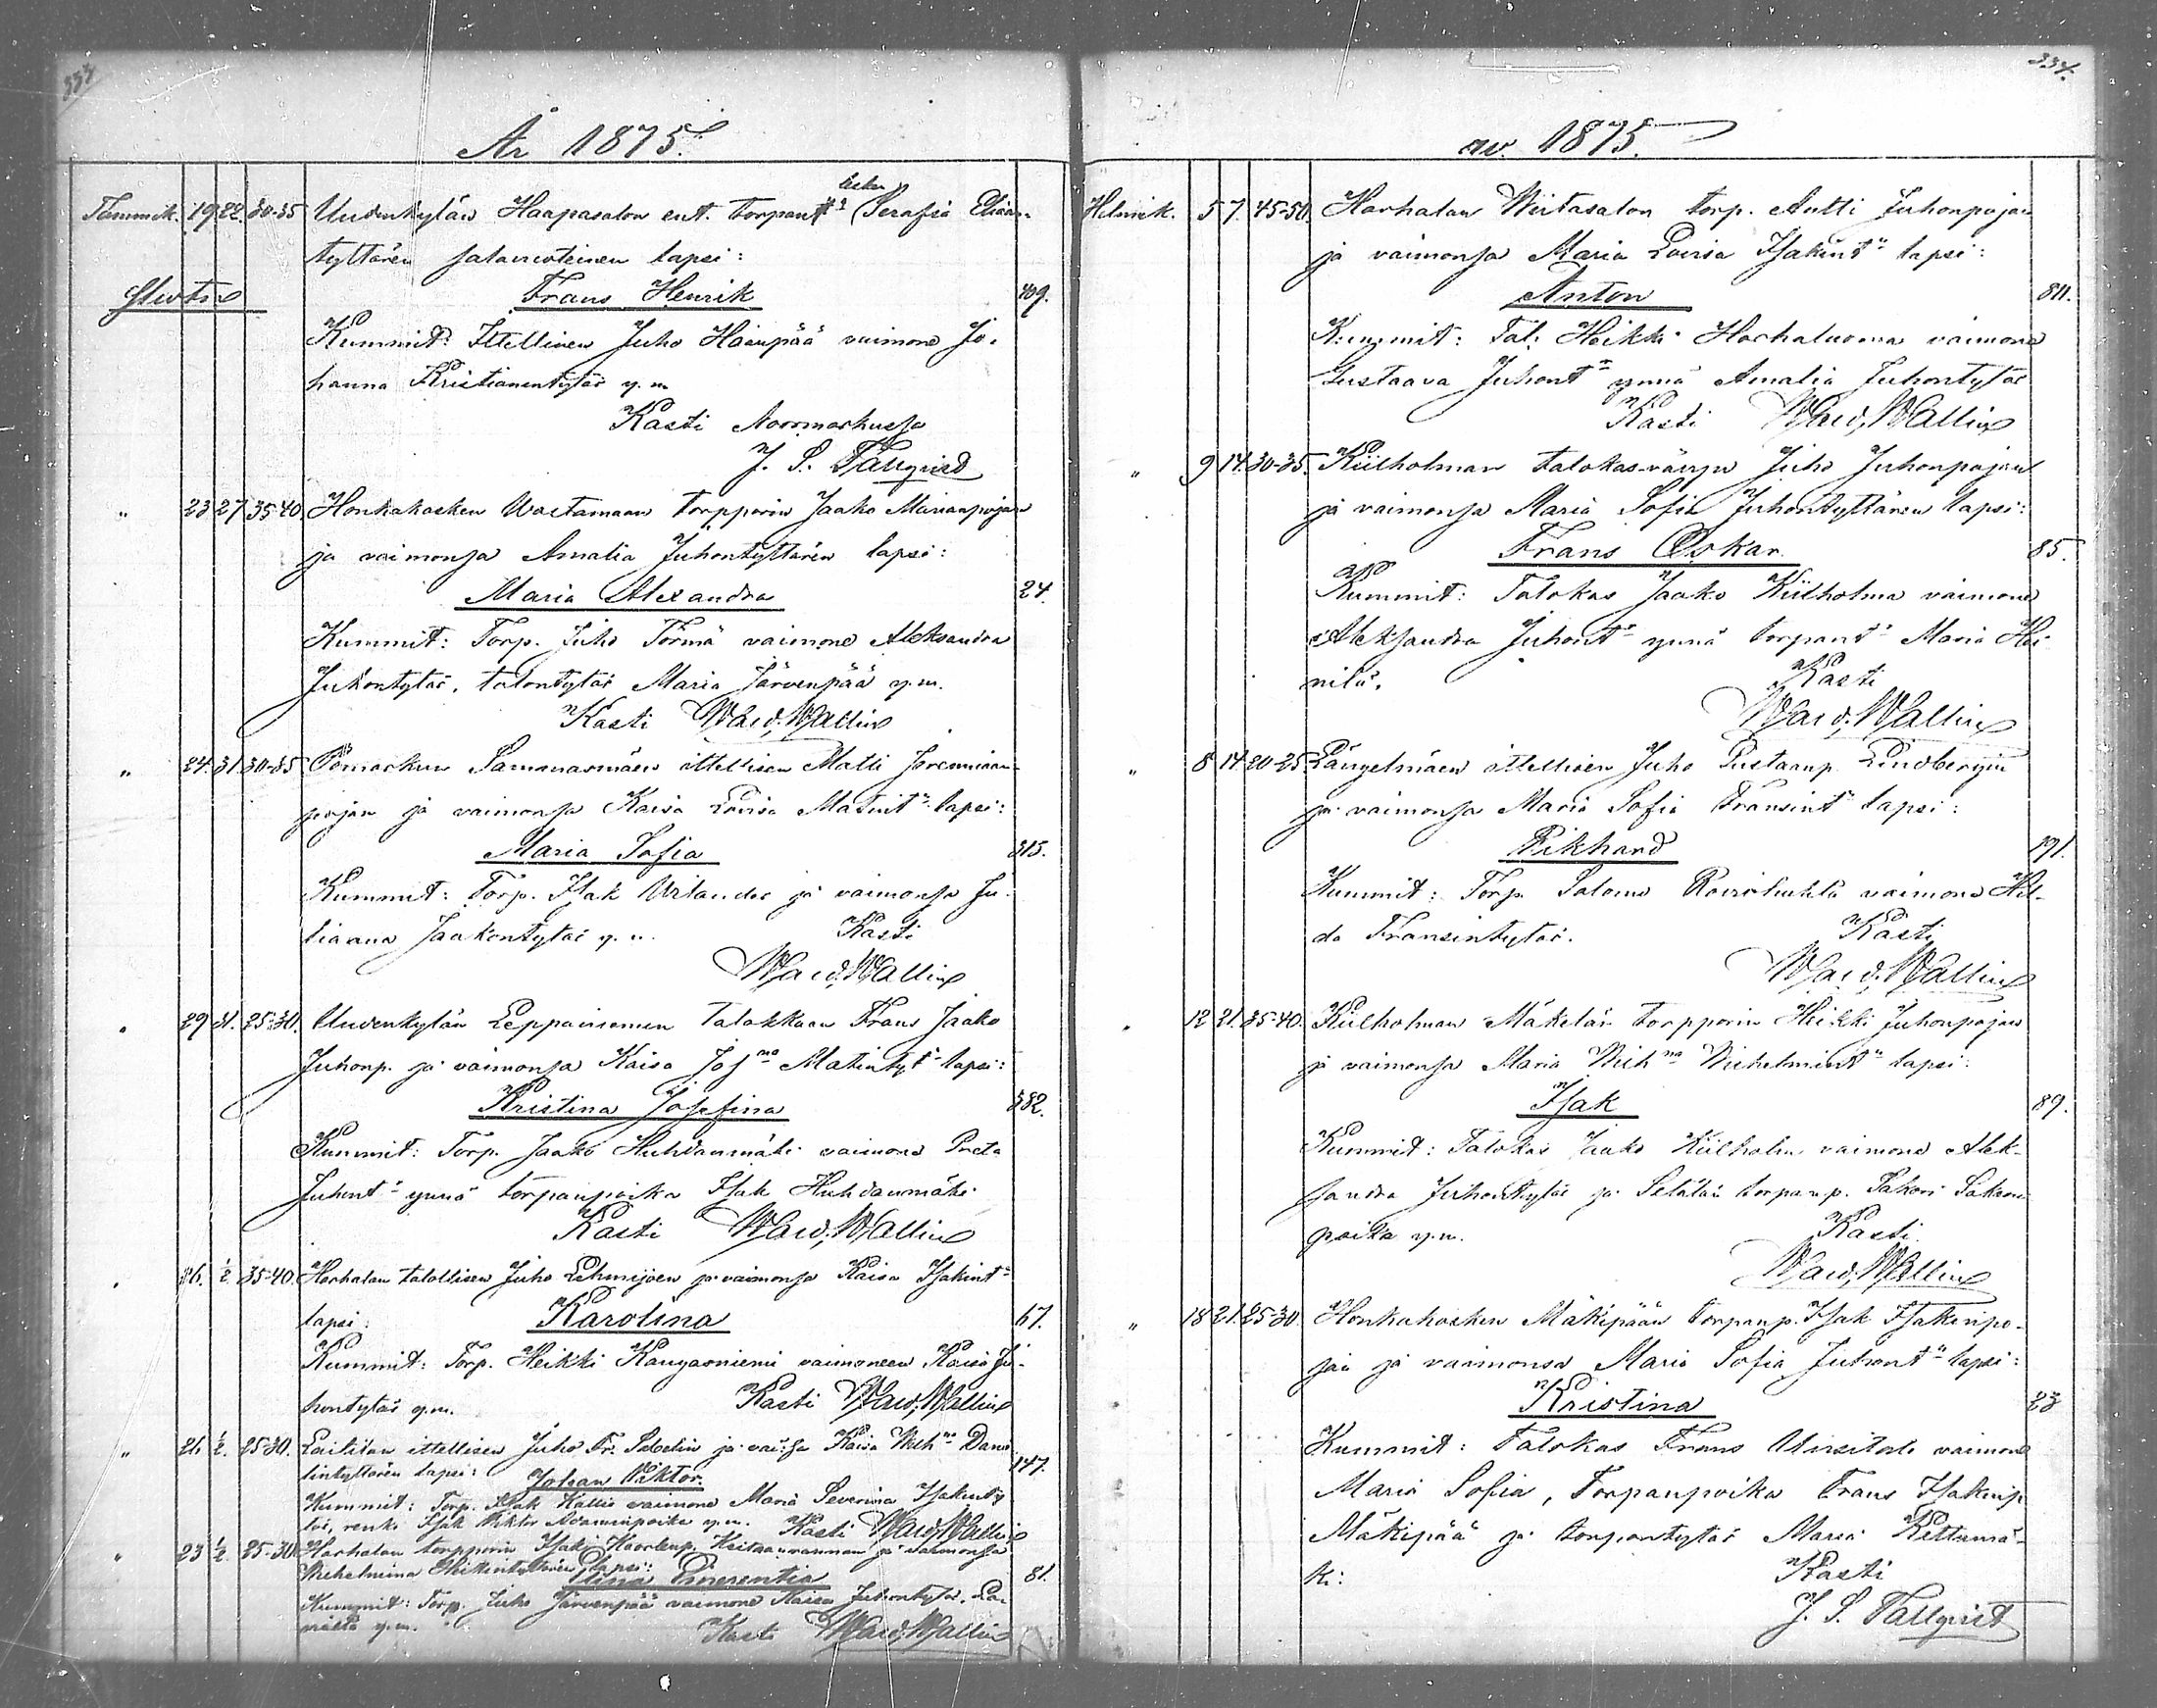 333
År 1875.
Tammik. 19 22. 30-35 Uudenkylän Haapasalon ent. torpant:s lesken Serafia Elian-
tyttären salavuoteinen lapsi:
Frans Henrik 409.
Kummit: Itellinen Juho Haanpää vaimone Jo-
hanna Kristianintytär y.m
Kasti Norrmarkussa
J. S. Tallqvist
" 23 27 35-40. Honkakosken Wastamaan torpparin Jaako Marianpojan
ja vaimonsa Amalia Juhontyttären lapsi:
Maria Alexandra 24.
Kummit: Torp. Juho Törmä vaimone Aleksandra
Juhontytär, talontytär Maria Järvenpää y.m.
Kasti Wald. Wallin
" 24. 31. 30-35 Pomarkun Sammasmäen ittellisen Matti Jeremiaan-
pojan ja vaimonsa Kaisa Lovisa Matint:n lapsi:
Maria Sofia 315.
Kummit: Torp. Isak Vilander ja vaimonsa Ju-
liaana Jaakontytär y.m.
Kasti
Wald. Wallin
" 29 31. 25-30. Uudenkylän Leppäniemen talokkaan Frans Jaako
Juhonp. ja vaimonsa Kaisa Jos:na Matintyt:n lapsi:
Kristina Josefina 382.
Kummit: Torp. Jaako Huhdanmäki vaimone Greta
Juhont:r ynnä torpanpoika Isak Huhdanmäki
Kasti Wald. Wallin
" 26. 1/2 35-40. Harhalan talollisen Juho Lehmijoen ja vaimonsa Kaisa Isakint:n
lapsi: Karolina 67.
Kummit: Torp. Heikki Kangasniemi vaimoneen Kaisa Ju-
hontytär y.m. Kasti Wald. Wallin
" 26. 1/2. 25-30. ittellisen Juho Fr. ja vai:sa Kaisa Wilh:na Danie-
lintyttären lapsi: Johan Viktor. 147.
Kummit: Torp. Isak Kallio vaimone Maria Severina Isakinty-
tär, renki Isak Viktor Adaminpoika y.m. Kasti Wald. Wallin
" 23 1/2. 25-30. Harhalan torpparin Isak ja vaimonsa
Wilhelmina Heikintyttären lapsi: Elina Emerentia 81.
Kummit: Torp. Juho Järvenpää vaimone Kaisa Juhontytär,
y.m. Kasti Wald. Wallin
334.
av. 1875.
Helmik. 5 7. 45-50. Harhalan Wiitasalon torp. Antti Juhonpojan
ja vaimonsa Maria Lovisa Isakint:n lapsi:
Anton 811.
Kummit: Tal: Heikki Harhaluoma vaimone
Gustaava Juhont:r ynnä Amalia Juhontytär
Kasti Wald. Wallin
" 9 14. 30-35. Kiilholman talokas-vävyn Juho Juhonpojan
ja vaimonsa Maria Sofia Juhontyttären lapsi:
Frans Oskar 85.
Kummit: Talokas Jaako Kiilholma vaimone
Aleksandra Juhont:r ynnä torpant:r Maria Hei-
nilä.
Kasti
Wald. Wallin
" 8 14 20-25. Längelmäen ittellisen Juho Kustaanp. Lindbergin
ja vaimonsa Maria Sofia Fransint:n lapsi:
Rikhard 191.
Kummit: Torp. Salomo vaimone Hil-
da Fransintytär.
Kasti
Wald. Wallin
" 12 21. 35-40. Kiilholman Mäkelän torpparin Heikki Juhonpojan
ja vaimonsa Maria Wilh:na Wilhelmint:n lapsi:
Isak 89.
Kummit: Talokas Jaako Kiilholma vaimone Alek-
sandra Juhontytär ja Setälän torpanp. Sakari Sakarin-
poika y.m.
Kasti
Wald. Wallin
" 18 21. 25-30. Honkakosken Mäkipään torpanp. Isak Isakinpo-
jan ja vaimonsa Maria Sofia Juhont:n lapsi:
Kristina 23
Kummit: Talokas Frans Uusitalo vaimone
Maria Sofia, Torpanpoika Frans Isakinp.
Mäkipää ja torpantytär Maria Kettumä-
ki:
Kasti
J. S. Tallqvist